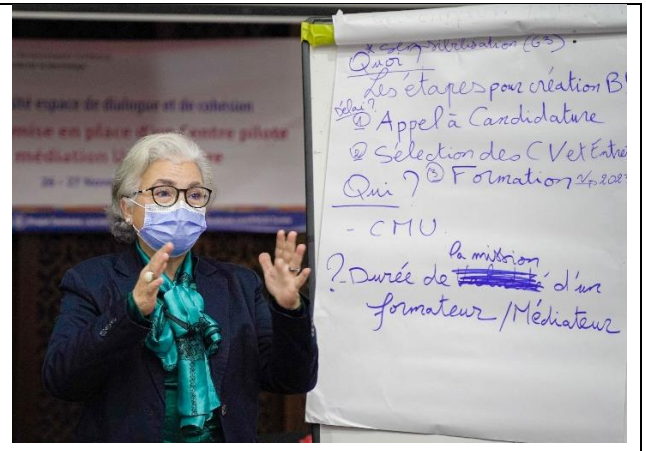 espace de dialogue et de cohésion
mise en place d'un Centre pilote
médiation
26 - 27 Nov
* Sensibilisation (G3)
Quoi ?
Les étapes pour création B
délai ?
① Appel à Candidature
② Sélection des CV et Entre
Qui ? ③ Formation
- CMU
la mission
? - Durée de d'un
formateur / Médiateur